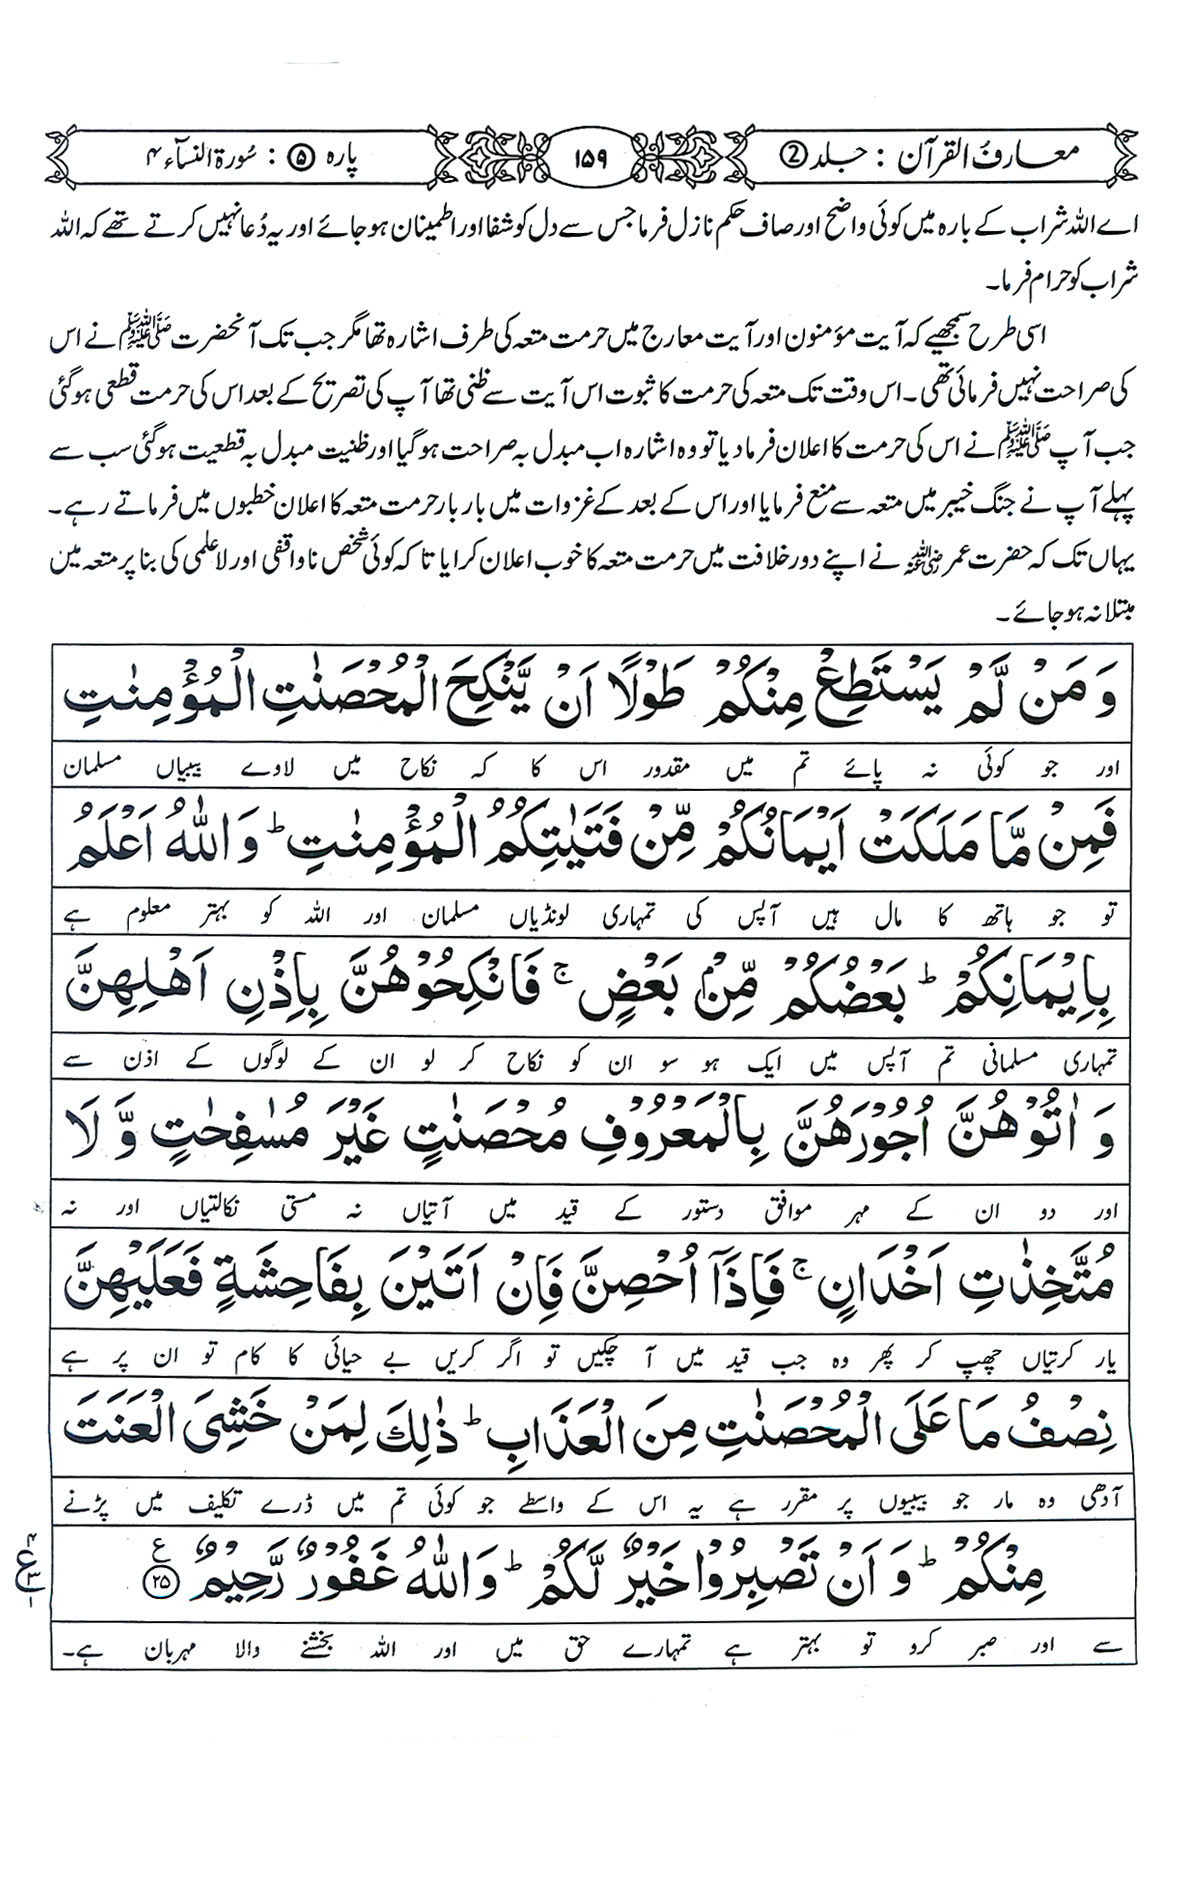 معارف القرآن : جلد ②
۱۵۹
پارہ ⑤ : سُورۃ النسآء ۴
اے اللہ شراب کے بارہ میں کوئی واضح اور صاف حکم نازل فرما جس سے دل کو شفا اور اطمینان ہو جائے اور یہ دُعا نہیں کرتے تھے کہ اللہ
شراب کو حرام فرما۔
اسی طرح سمجھیے کہ آیت مؤمنون اور آیت معارج میں حرمت متعہ کی طرف اشارہ تھا مگر جب تک آنحضرت ﷺ نے اس
کی صراحت نہیں فرمائی تھی۔ اس وقت تک متعہ کی حرمت کا ثبوت اس آیت سے ظنی تھا آپ کی تصریح کے بعد اس کی حرمت قطعی ہوگئی
جب آپ ﷺ نے اس کی حرمت کا اعلان فرمادیا تو وہ اشارہ اب مبدل بہ صراحت ہوگیا اور ظنیت مبدل بہ قطعیت ہوگئی سب سے
پہلے آپ نے جنگ خیبر میں متعہ سے منع فرمایا اور اس کے بعد کے غزوات میں بار بار حرمت متعہ کا اعلان خطبوں میں فرماتے رہے۔
یہاں تک کہ حضرت عمر رضی اللہ عنہ نے اپنے دور خلافت میں حرمت متعہ کا خوب اعلان کرایا تا کہ کوئی شخص ناواقفی اور لاعلمی کی بنا پر متعہ مین
مبتلا نہ ہو جائے۔
وَ مَنْ لَّمْ یَسْتَطِعْ مِنْكُمْ طَوْلًا اَنْ یَّنْكِحَ الْمُحْصَنٰتِ الْمُؤْمِنٰتِ
اور جو کوئی نہ پائے تم میں مقدور اس کا کہ نکاح میں لاوے بیبیاں مسلمان
فَمِنْ مَّا مَلَكَتْ اَیْمَانُكُمْ مِّنْ فَتَیٰتِكُمُ الْمُؤْمِنٰتِ ؕ وَ اللّٰهُ اَعْلَمُ
تو جو ہاتھ کا مال ہیں آپس کی تمہاری لونڈیاں مسلمان اور اللہ کو بہتر معلوم ہے
بِاِیْمَانِكُمْ ؕ بَعْضُكُمْ مِّنْۢ بَعْضٍ ۚ فَانْكِحُوْهُنَّ بِاِذْنِ اَهْلِهِنَّ
تمہاری مسلمانی تم آپس میں ایک ہو سو ان کو نکاح کر لو ان کے لوگوں کے اذن سے
وَ اٰتُوْهُنَّ اُجُوْرَهُنَّ بِالْمَعْرُوْفِ مُحْصَنٰتٍ غَیْرَ مُسٰفِحٰتٍ وَّ لَا
اور دو ان کے مہر موافق دستور کے قید میں آتیاں نہ مستی نکالتیاں اور نہ
مُتَّخِذٰتِ اَخْدَانٍ ۚ فَاِذَاۤ اُحْصِنَّ فَاِنْ اَتَیْنَ بِفَاحِشَةٍ فَعَلَیْهِنَّ
یار کرتیاں چھپ کر پھر وہ جب قید میں آ چکیں تو اگر کریں بے حیائی کا کام تو ان پر ہے
نِصْفُ مَا عَلَى الْمُحْصَنٰتِ مِنَ الْعَذَابِ ؕ ذٰلِكَ لِمَنْ خَشِیَ الْعَنَتَ
آدھی وہ مار جو بیبیوں پر مقرر ہے یہ اس کے واسطے جو کوئی تم میں ڈرے تکلیف میں پڑنے
مِنْكُمْ ؕ وَ اَنْ تَصْبِرُوْا خَیْرٌ لَّكُمْ ؕ وَ اللّٰهُ غَفُوْرٌ رَّحِیْمٌ ۲۵
سے اور صبر کرو تو بہتر ہے تمہارے حق میں اور اللہ بخشنے والا مہربان ہے۔